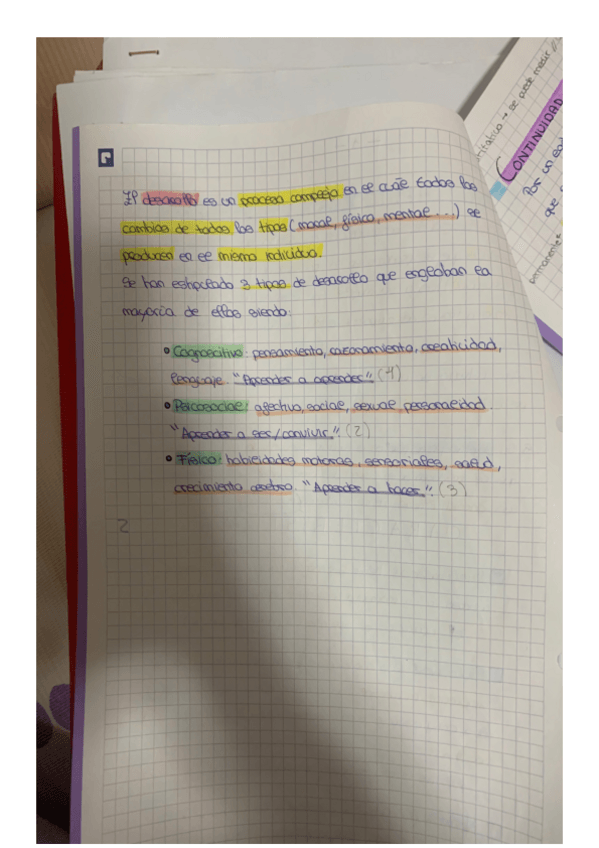 El desarrollo es un proceso complejo en el cual todos los
cambios de todos los tipos (moral, físico, mental ...) se
producen en el mismo individuo.
Se han estipulado 3 tipos de desarrollo que engloban la
mayoría de ellos siendo:
• Cognoscitivo: pensamiento, razonamiento, creatividad,
lenguaje. "Aprender a aprender" (1)
• Psicosocial: afectivo, social, sexual personalidad.
"Aprender a ser/convivir". (2)
• Físico: habilidades motoras, sensoriales, salud,
crecimiento cerebro. "Aprender a hacer". (3)
2
se puede medir
CONTINUIDAD
Por un
que